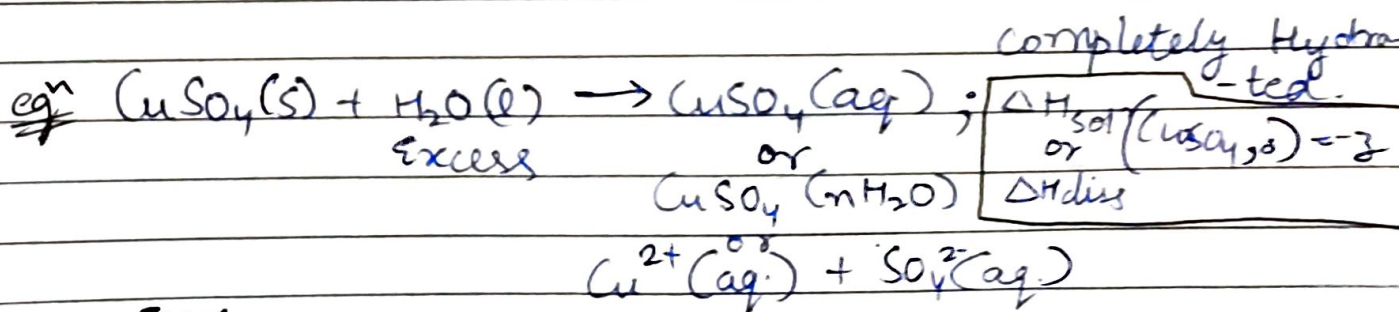 completely Hydra
-ted.
eqⁿ CuSO₄(S) + H₂O(l) → CuSO₄(aq) ; ΔHsol (CuSO₄,s) = -z
Excess or or
CuSO₄ (nH₂O) ΔHdiss
or
Cu²⁺(aq.) + SO₄²⁻(aq.)